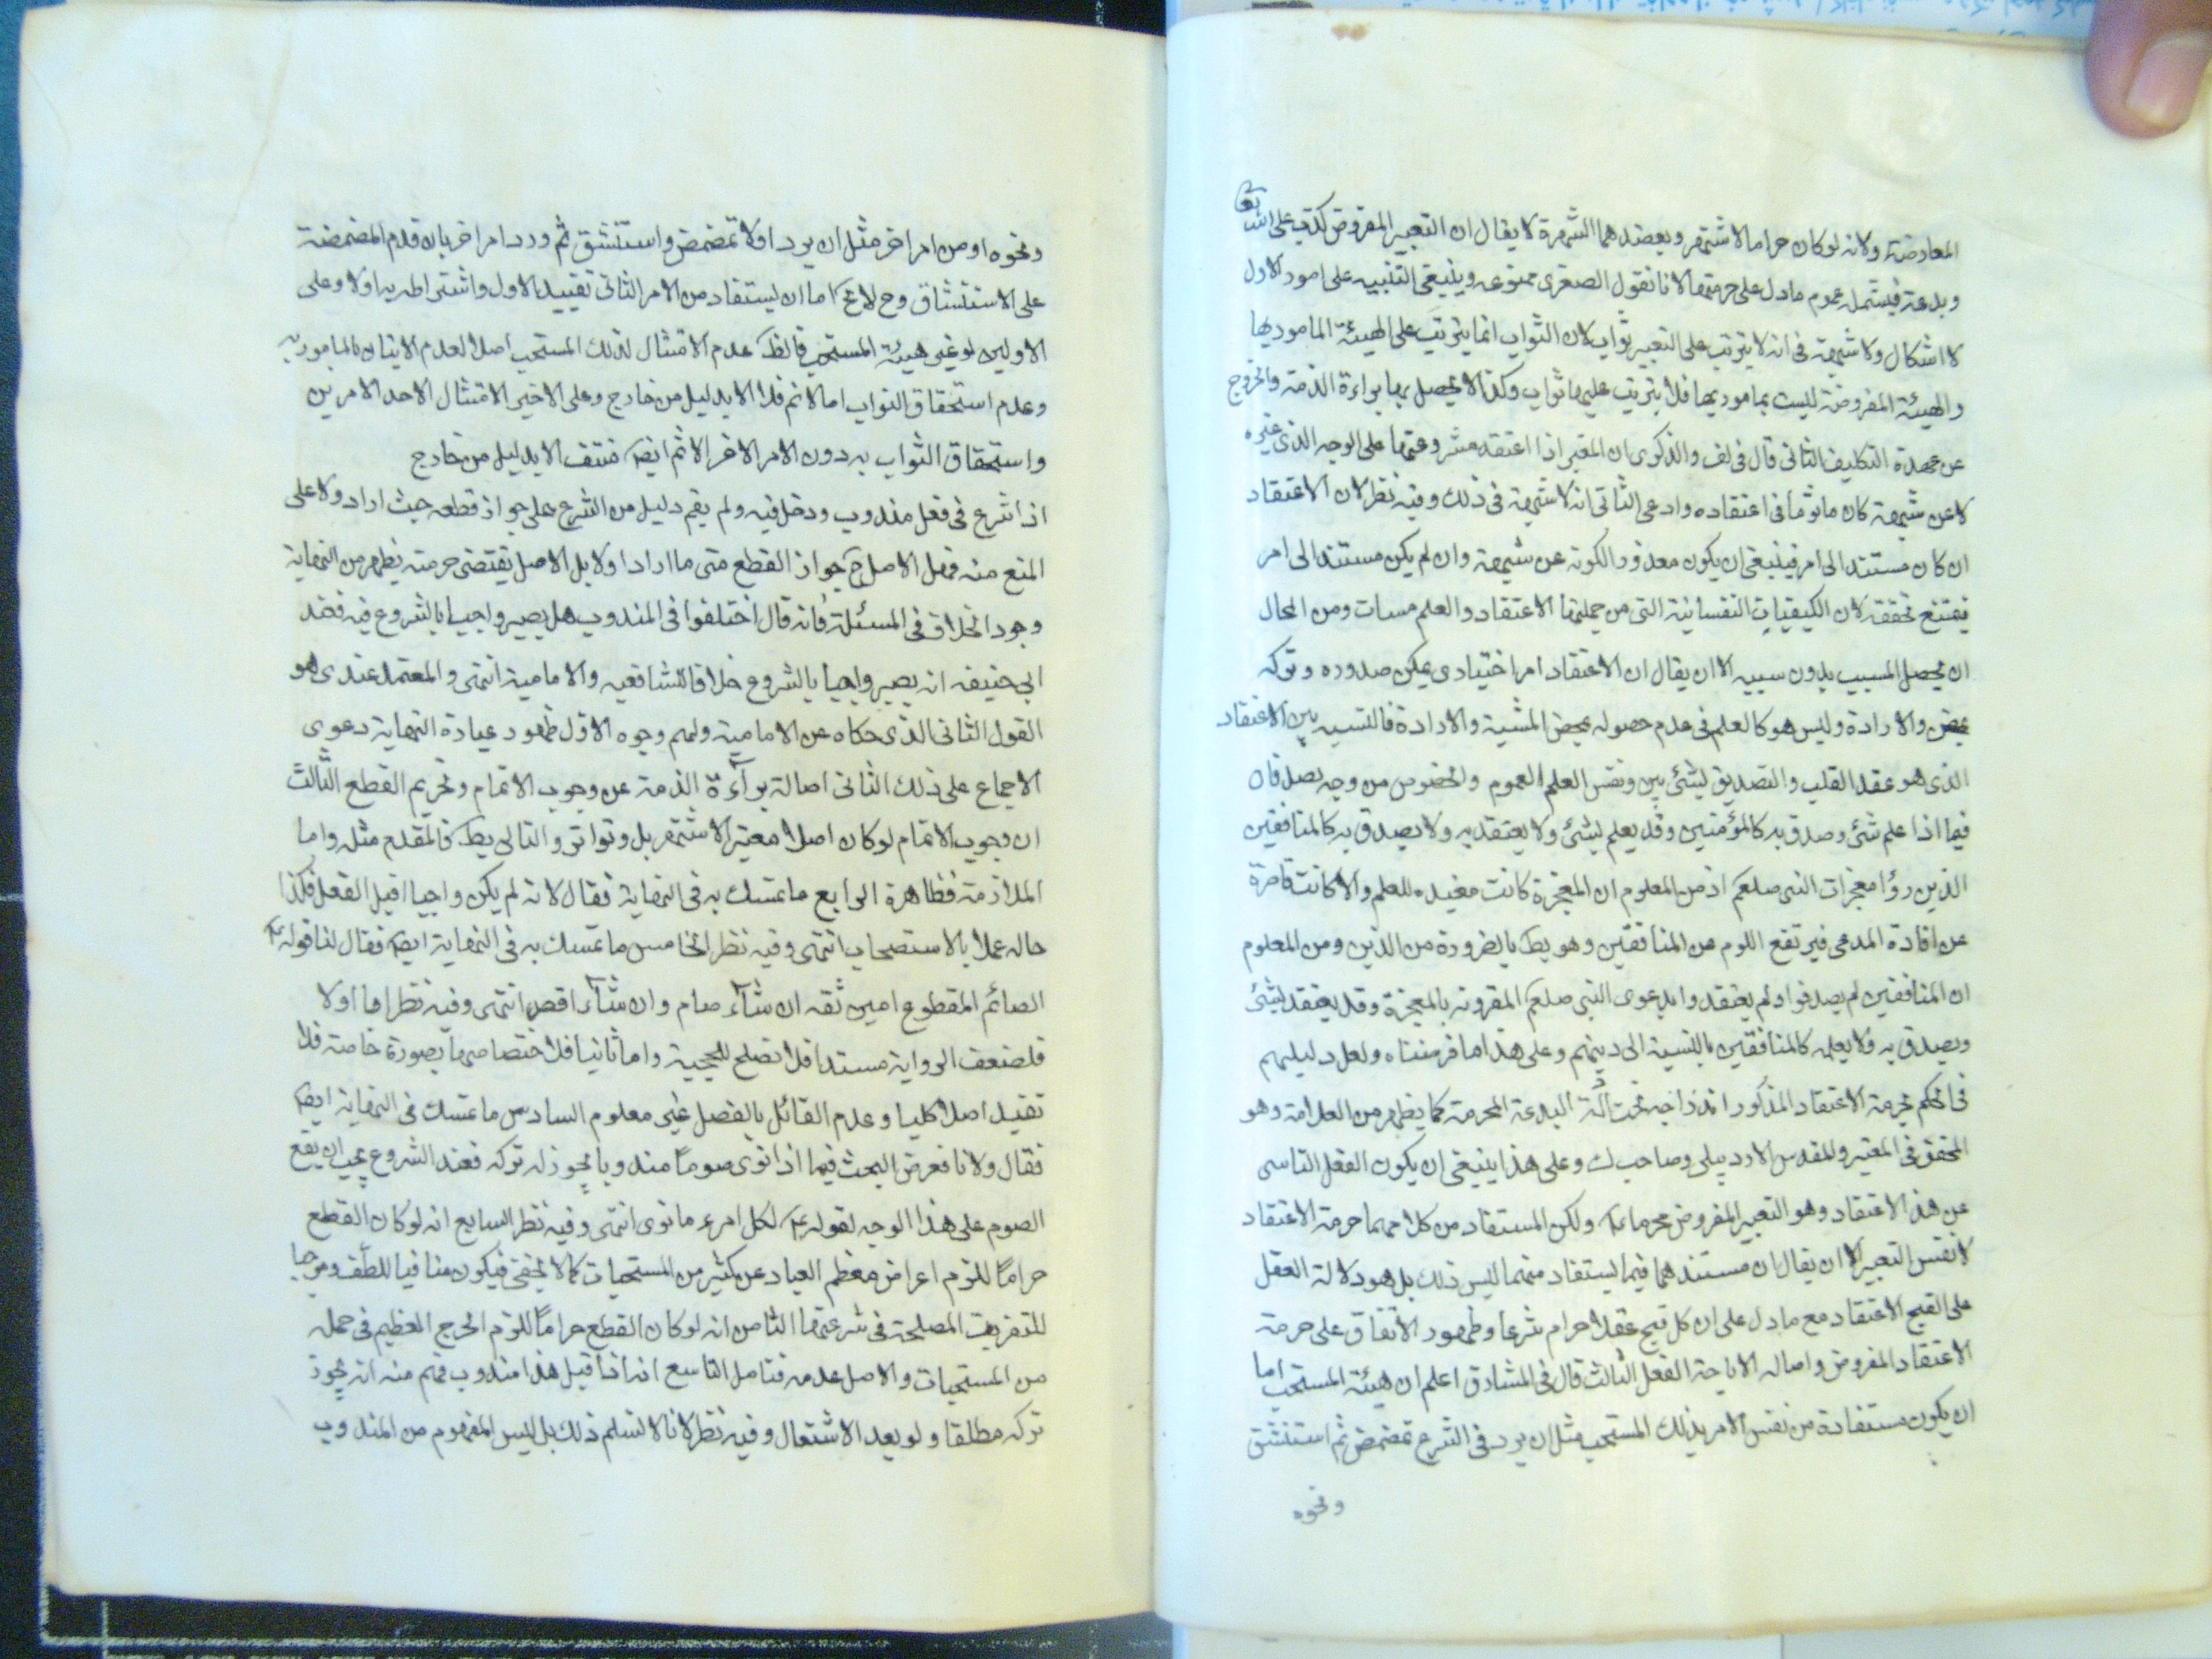 المعارضة ولانه لو كان حراما لاشتهر ويعضدهما الشهرة لا يقال ان التغيير المفروض كذب على الله تعا
وبدعة فيشمله عموم ما دل على حرمتها لانا نقول الصغرى ممنوعه وينبغى التنبيه على امور الاول
لا اشكال ولا شبهة فى انه لا يترتب على التغيير ثواب لان الثواب انما يترتب على الهيئة المامور بها
والهيئة المفروضة ليست بمامور بها فلا يترتب عليها ثواب وكذا لا يحصل بها براءة الذمة والخروج
عن عهدة التكليف الثانى قال فى لف والذكرى ان المغير اذا اعتقد مشروعيتها على الوجه الذى غيره
لا عن شبهة كان ماثوما فى اعتقاده وادعى الثانى انه لا شبهة فى ذلك وفيه نظر لان الاعتقاد
ان كان مستندا الى امر فينبغى ان يكون معذورا لكونه عن شبهة وان لم يكن مستندا الى امر
فيمتنع تحققه لان الكيفيات النفسانية التى من جملتها الاعتقاد والعلم مسببات ومن المحال
ان يحصل المسبب بدون سببه الا ان يقال ان الاعتقاد امر اختيارى يمكن صدوره وتركه
بمحض والارادة وليس هو كالعلم فى عدم حصوله بمحض المشية والارادة فالنسبه بين الاعتقاد
الذى هو عقد القلب والتصديق لشئ بين ونفس العلم العموم والخصوص من وجه يصدقان
فيما اذا علم شئ وصدق به كالمؤمنين وقد يعلم لشئ ولا يعتقد به ولا يصدق به كالمنافقين
الذين رؤا معجزات النبى صلعم اذ من المعلوم ان المعجزة كانت مفيده للعلم والا كانت قاصرة
عن افادة المدعى فيرتفع اللوم عن المنافقين وهو بط بالضرورة من الدين ومن المعلوم
ان المنافقين لم يصدقوا ولم يعتقدوا بدعوى النبى صلعم المقرونه بالمعجزة وقد يعتقد لشئ
ويصدق به ولا يعلم كالمنافقين بالنسبة الى دينهم وعلى هذا ما فرضناه ولعل دليلهم
فى الحكم بحرمة الاعتقاد المذكور اندراجه تحت ادلة البدعة المحرمة كما يظهر من العلامة وهو
المحقق فى المعتبر والمقدس الاردبيلى وصاحب ك وعلى هذا ينبغى ان يكون الفعل الناسى
عن هذا الاعتقاد وهو التغيير المفروض محرما ولكن المستفاد من كلامهما حرمة الاعتقاد
لا نفس التغيير الا ان يقال ان مستندهما فيما يستفاد منهما ليس ذلك بل هو دلالة العقل
على القبح الاعتقاد مع ما دل على ان كل قبيح عقلا حرام شرعا وظهور الاتفاق على حرمة
الاعتقاد المفروض واصاله الاباحة الفعل الثالث قال فى المشارق اعلم ان هيئة المستحب اما
ان يكون مستفادة من نفس الامر بذلك المستحب مثل ان يرد فى الشرع تمضمض ثم استنشق
ونحوه
ونحوه او من امر اخر مثل ان يرد اولا تمضمض واستنشق ثم ورد امر اخر بان قدم المضمضة
على الاستنشاق وح لا يخ اما ان يستفاد من الامر الثانى تقييد الاول واشتراطه به اولا وعلى
الاولين لو غير هيئة المستحب فالظ عدم الامتثال لذلك المستحب اصلا لعدم الاتيان بالمامور به
وعدم استحقاق الثواب اما لاثم فلا الا بدليل من خارج وعلى الاخير الامتثال لاحد الامرين
واستحقاق الثواب به دون الامر الاخر الاثم ايضا منتف الا بدليل من خارج
اذا شرع فى فعل مندوب ودخل فيه ولم يقم دليل من الشرع على جواز قطعه حيث اراد ولا على
المنع منه فهل الاصل ح جواز القطع متى ما اراد اولا بل الاصل يقتضى حرمته يظهر من النهاية
وجود الخلاف فى المسئلة فانه قال اختلفوا فى المندوب هل يصير واجبا بالشروع فيه فعند
ابى حنيفه انه يصير واجبا بالشروع خلافا للشافعيه والامامية انتهى والمعتمد عندى هو
القول الثانى الذى حكاه عن الامامية ولهم وجوه الاول ظهور عبارة النهاية دعوى
الاجماع على ذلك الثانى اصالة براءة الذمة عن وجوب الاتمام وتحريم القطع الثالث
ان وجوب الاتمام لو كان اصلا معتبرا لاشتهر بل وتواتر والتالى بط فالمقدم مثله واما
الملازمة فظاهرة الرابع ما تمسك به فى النهاية فقال لانه لم يكن واجبا قبل الفعل فكذا
حاله عملا بالاستصحاب انتهى وفيه نظر الخامس ما تمسك به فى النهاية ايضا فقال لنا قوله ع
الصائم المقطوع امين ثقه ان شاء صام وان شاء افطر انتهى وفيه نظر اما اولا
فلضعف الرواية مسندا فلا تصلح للحجية واما ثانيا فلاختصاصها بصورة خاصة فلا
تفيد اصلا كليا وعدم القائل بالفصل غير معلوم السادس ما تمسك فى النهاية ايضا
فقال ولانا نفرض البحث فيما اذا نوى صوما مندوبا يجوز له تركه فعند الشروع يجب ان يقع
الصوم على هذا الوجه لقوله ع لكل امرء ما نوى انتهى وفيه نظر السابع انه لو كان القطع
حراما للزم اعراض معظم العباد عن كثير من المستحبات كما لا يخفى فيكون منافيا للطف وموجبا
للتفريت المصلحة فى شرعيتها الثامن انه لو كان القطع حراما للزم الحرج العظيم فى جمله
من المستحبات والاصل عدمه فتامل التاسع انه اذا قيل هذا مندوب فهم منه انه يجوز
تركه مطلقا ولو بعد الاشتغال وفيه نظر لانا لا نسلم ذلك بل ليس المفهوم من المندوب